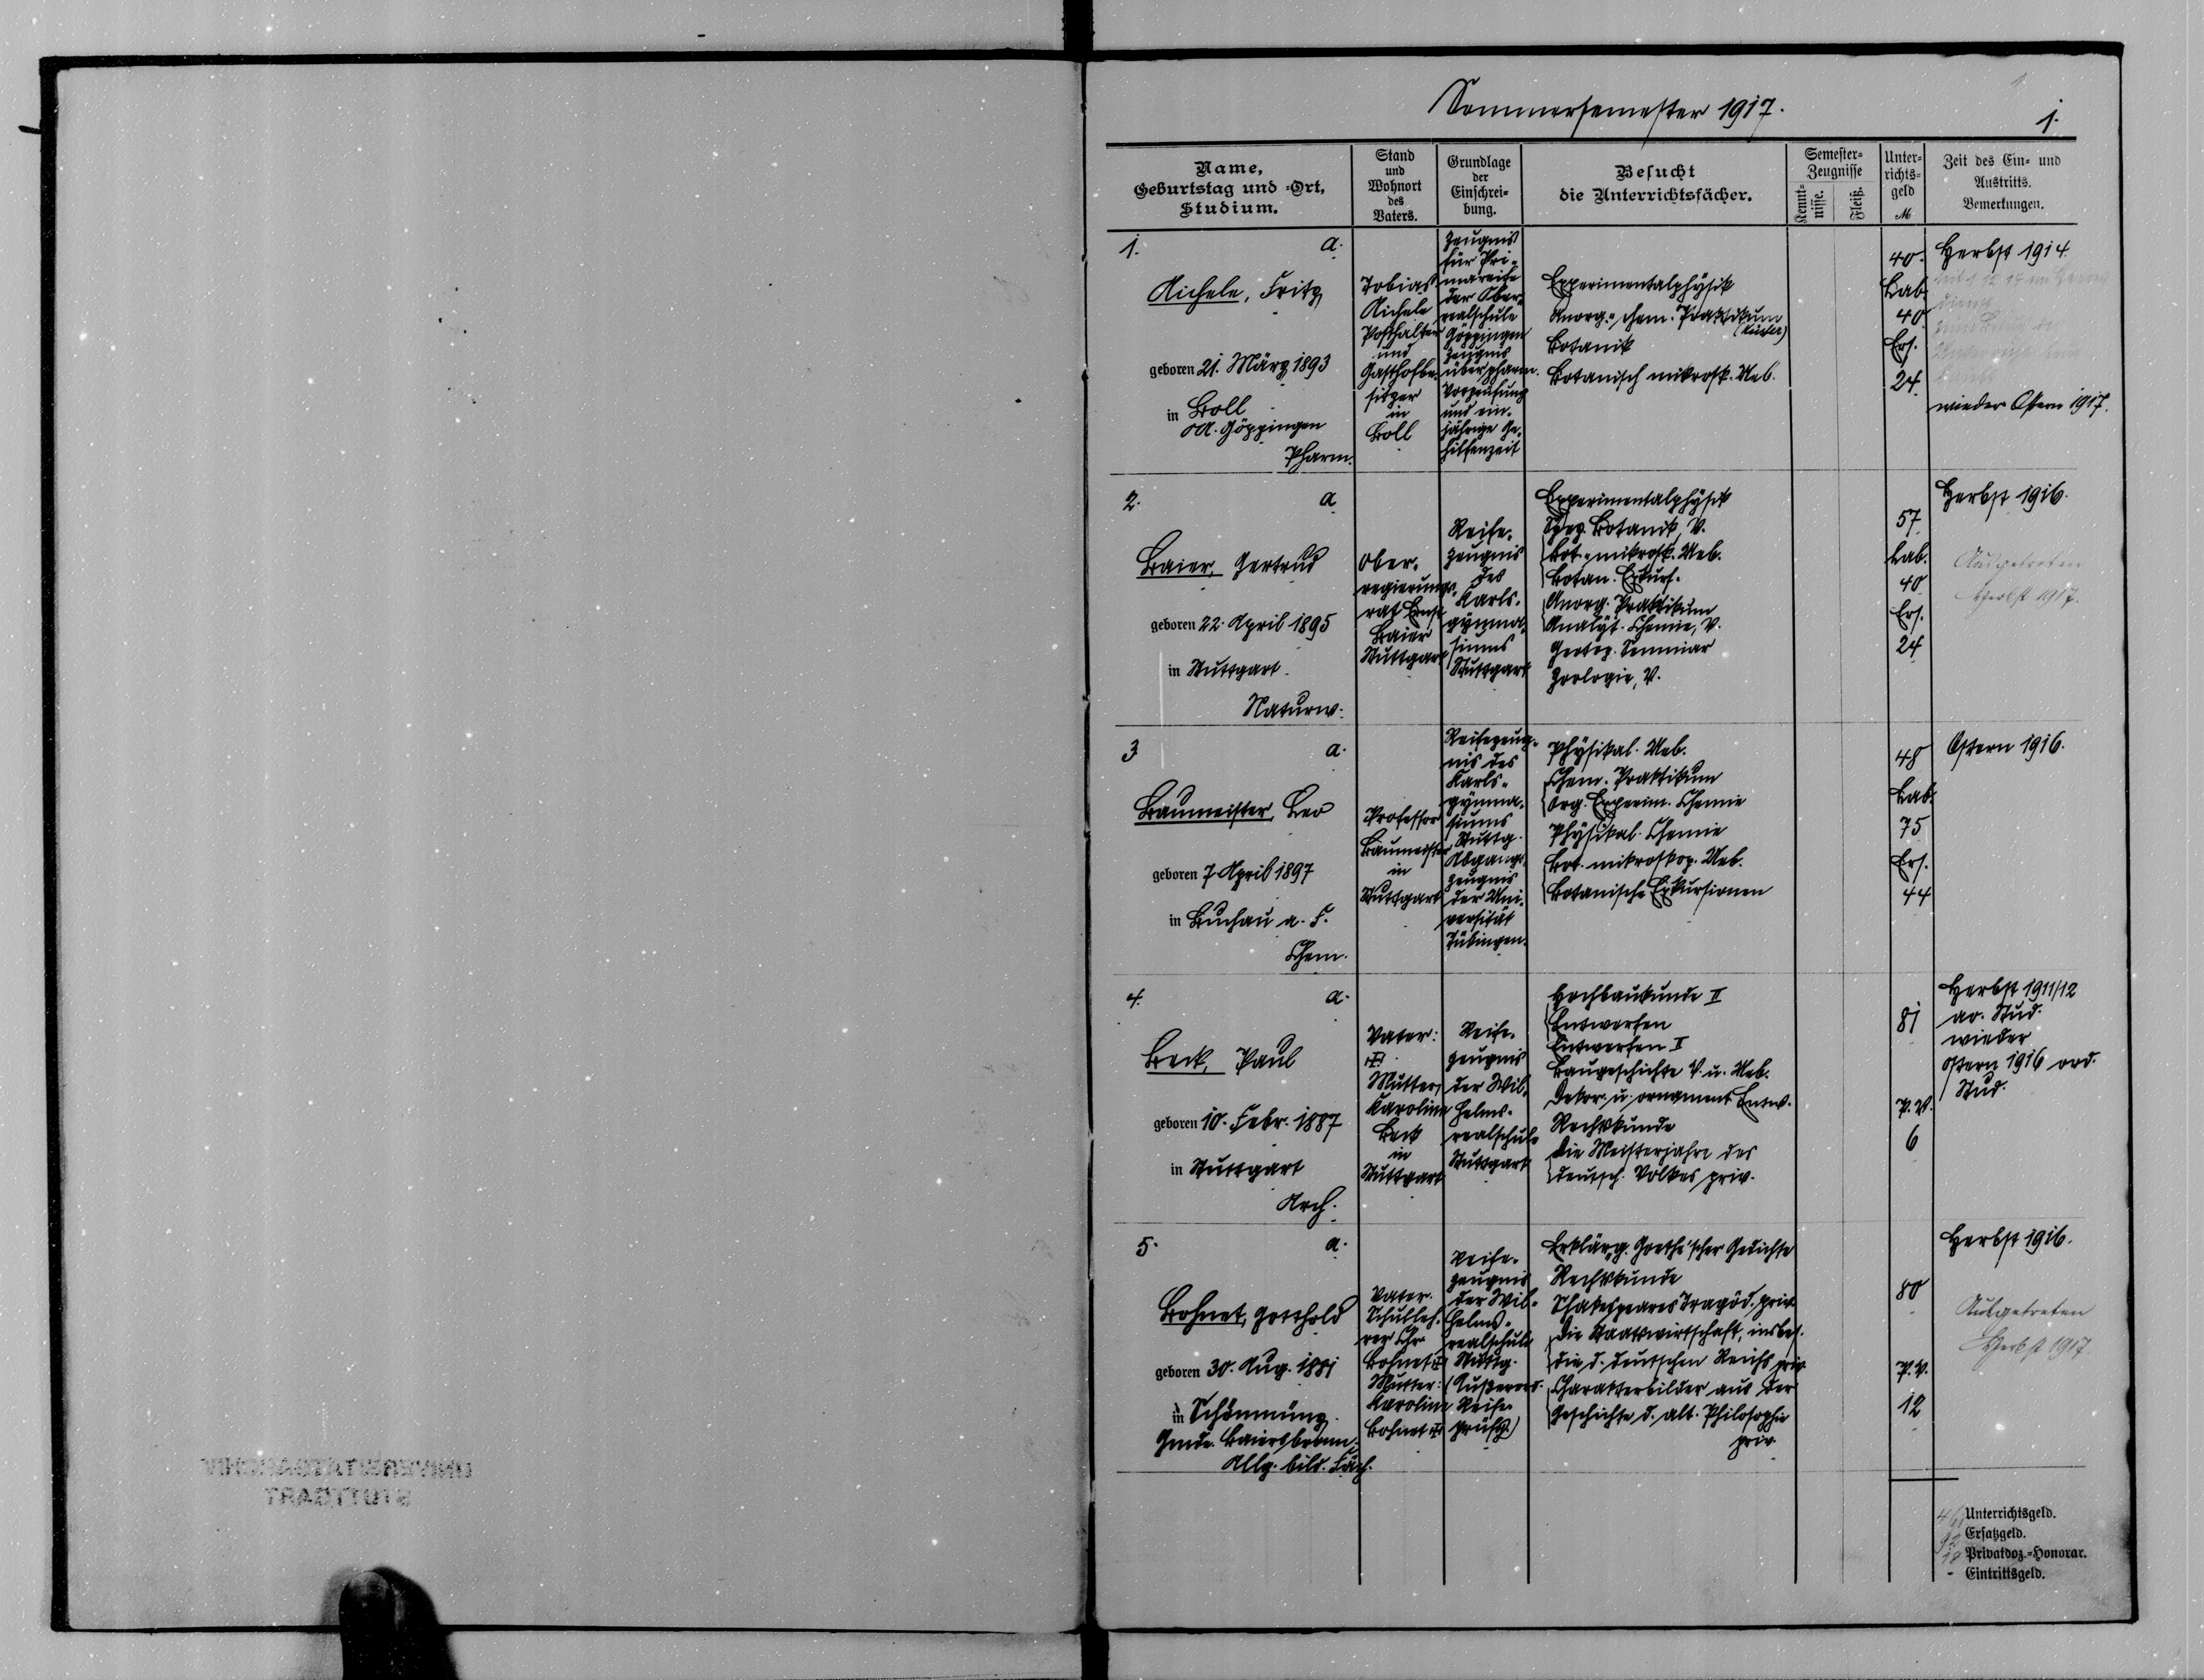 Sommersemester 1917.
1.
Name,
Geburtstag und -Ort,
Studium.
Stand
und
Wohnort
des
Vaters.
Grundlage
der
Einschrei-
bung.
Besucht
die Unterrichtsfächer.
Semester-
Zeugnisse
Kennt-
nisse.
Fleiß.
Unter-
richts-
geld
M
Zeit des Ein- und
Austritts.
Bemerkungen.
1.
a.
Aichele, Fritz
geboren 21. März 1893
in Boll
OA. Göppingen
Pharm.
Tobias
Aichele
Posthalter
und
Gasthofbe-
sitzer
in
Boll
Zeugnis
für Pri-
mareife
der Ober-
realschule
Göppingen
Zeugnis
über pharm.
Vorprüfung
und ein-
jährige Ge-
hilfenzeit
Experimentalphysik
Anorg.-chem. Praktikum
(Küster)
Botanik
Botanisch mikrosk. Ueb.
40.
Lab.
40
Ers.
24
Herbst 1914
wieder Ostern 1917.
2.
a
Baier, Gertrud
geboren 22. April 1895
in Stuttgart.
Naturw.
Ober-
regierungs-
rat Ernst
Baier
Stuttgart
Reife-
zeugnis
des
Karls-
gymna-
siums
Stuttgart
Experimentalphysik
Spez. Botanik, V.
Bot.-mikrosk. Ueb.
Botan. Exkurs.
Anorg. Praktikum
Analyt. Chemie, V.
Geolog. Seminar
Geologie, V.
57
Lab.
40
Ers.
24
Herbst 1916.
Ausgetreten
Herbst 1917.
3
a.
Baumeister, Leo
geboren 7. April 1897
in Buchau a. F.
Chem.
Professor
Baumeister
in
Stuttgart
Reifezeug-
nis des
Karls-
gymna-
siums
Stuttg.
Abgangs-
zeugnis
der Uni-
versität
Tübingen.
Physikal. Ueb.
Chem. Praktikum
Org. Experim. Chemie
Physikal. Chemie
Bot. mikroskop. Ueb.
Botanische Exkursionen
48
Lab.
75
Ers.
44
Ostern 1916.
4.
a.
Beck, Paul
geboren 10. Febr. 1887
in Stuttgart
Arch.
Vater:
†
Mutter
Karoline
Beck
in
Stuttgart
Reife-
zeugnis
der Wil-
helms-
realschule
Stuttgart
Hochbaukunde II
Entwerfen
Entwerfen I
Baugeschichte V. u. Ueb.
Dekor. u. ornament. Entw.
Rechtskunde
Die Meisterjahre des
deutsch. Volkes priv.
81
P.V.
6
Herbst 1911/12
ao. Stud.
wieder
Ostern 1916 ord.
Stud.
5.
a.
Bohnet, Gotthold
geboren 30. Aug. 1881
in Schönmünz.
Gmde. Baiersbronn.
Allg. bild. Fäch.
Vater.
Schulleh-
rer Chr.
Bohnet †
Mutter:
Karoline
Bohnet †
Reife-
zeugnis
der Wil-
helms-
realschule
Stuttg.
(Außerord.
Reife-
prüfg.)
Erklärg. Goethe'scher Gedichte
Rechtskunde
Shakespeares Tragöd. priv.
Die Staatswirtschaft, insbes.
die d. deutschen Reichs priv.
Charakterbilder aus der
Geschichte d. alt. Philosophie
priv.
80
P.V.
12
Herbst 1916.
Ausgetreten
Herbst 1917.
Unterrichtsgeld.
Ersatzgeld.
18 Privatdoz.-Honorar.
- Eintrittsgeld.
UNIVERSITÄTSARCHIV
STUTTGART